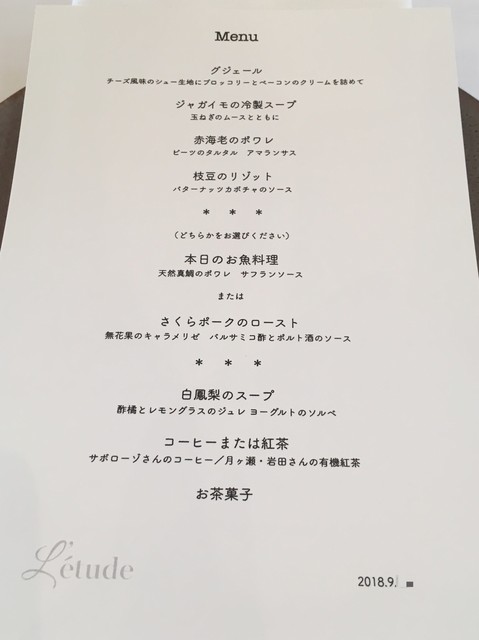 Menu
グジェール
チーズ風味のシュー生地にブロッコリーとベーコンのクリームを詰めて
ジャガイモの冷製スープ
玉ねぎのムースとともに
赤海老のポワレ
ビーツのタルタル　アマランサス
枝豆のリゾット
バターナッツカボチャのソース
＊　＊　＊
（どちらかをお選びください）
本日のお魚料理
天然真鯛のポワレ　サフランソース
または
さくらポークのロースト
無花果のキャラメリゼ　バルサミコ酢とポルト酒のソース
＊　＊　＊
白鳳梨のスープ
酢橘とレモングラスのジュレ ヨーグルトのソルベ
コーヒーまたは紅茶
サボローゾさんのコーヒー／月ヶ瀬・岩田さんの有機紅茶
お茶菓子
L'étude
2018.9.